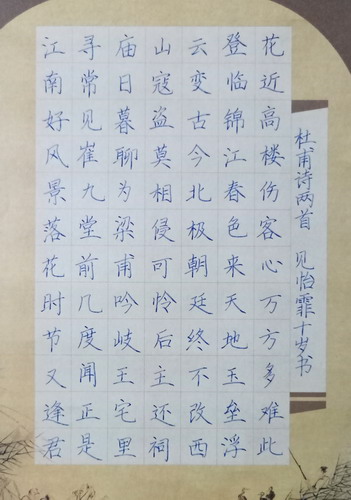 杜甫诗两首 见怡霏十岁书
花近高楼伤客心万方多难此
登临锦江春色来天地玉垒浮
云变古今北极朝廷终不改西
山寇盗莫相侵可怜后主还祠
庙日暮聊为梁甫吟岐王宅里
寻常见崔九堂前几度闻正是
江南好风景落花时节又逢君